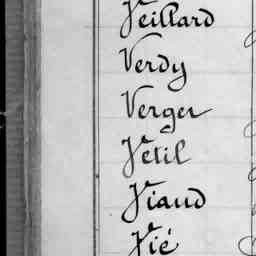 Veillard
Verdy
Verger
Vétil
Viaud
Vié